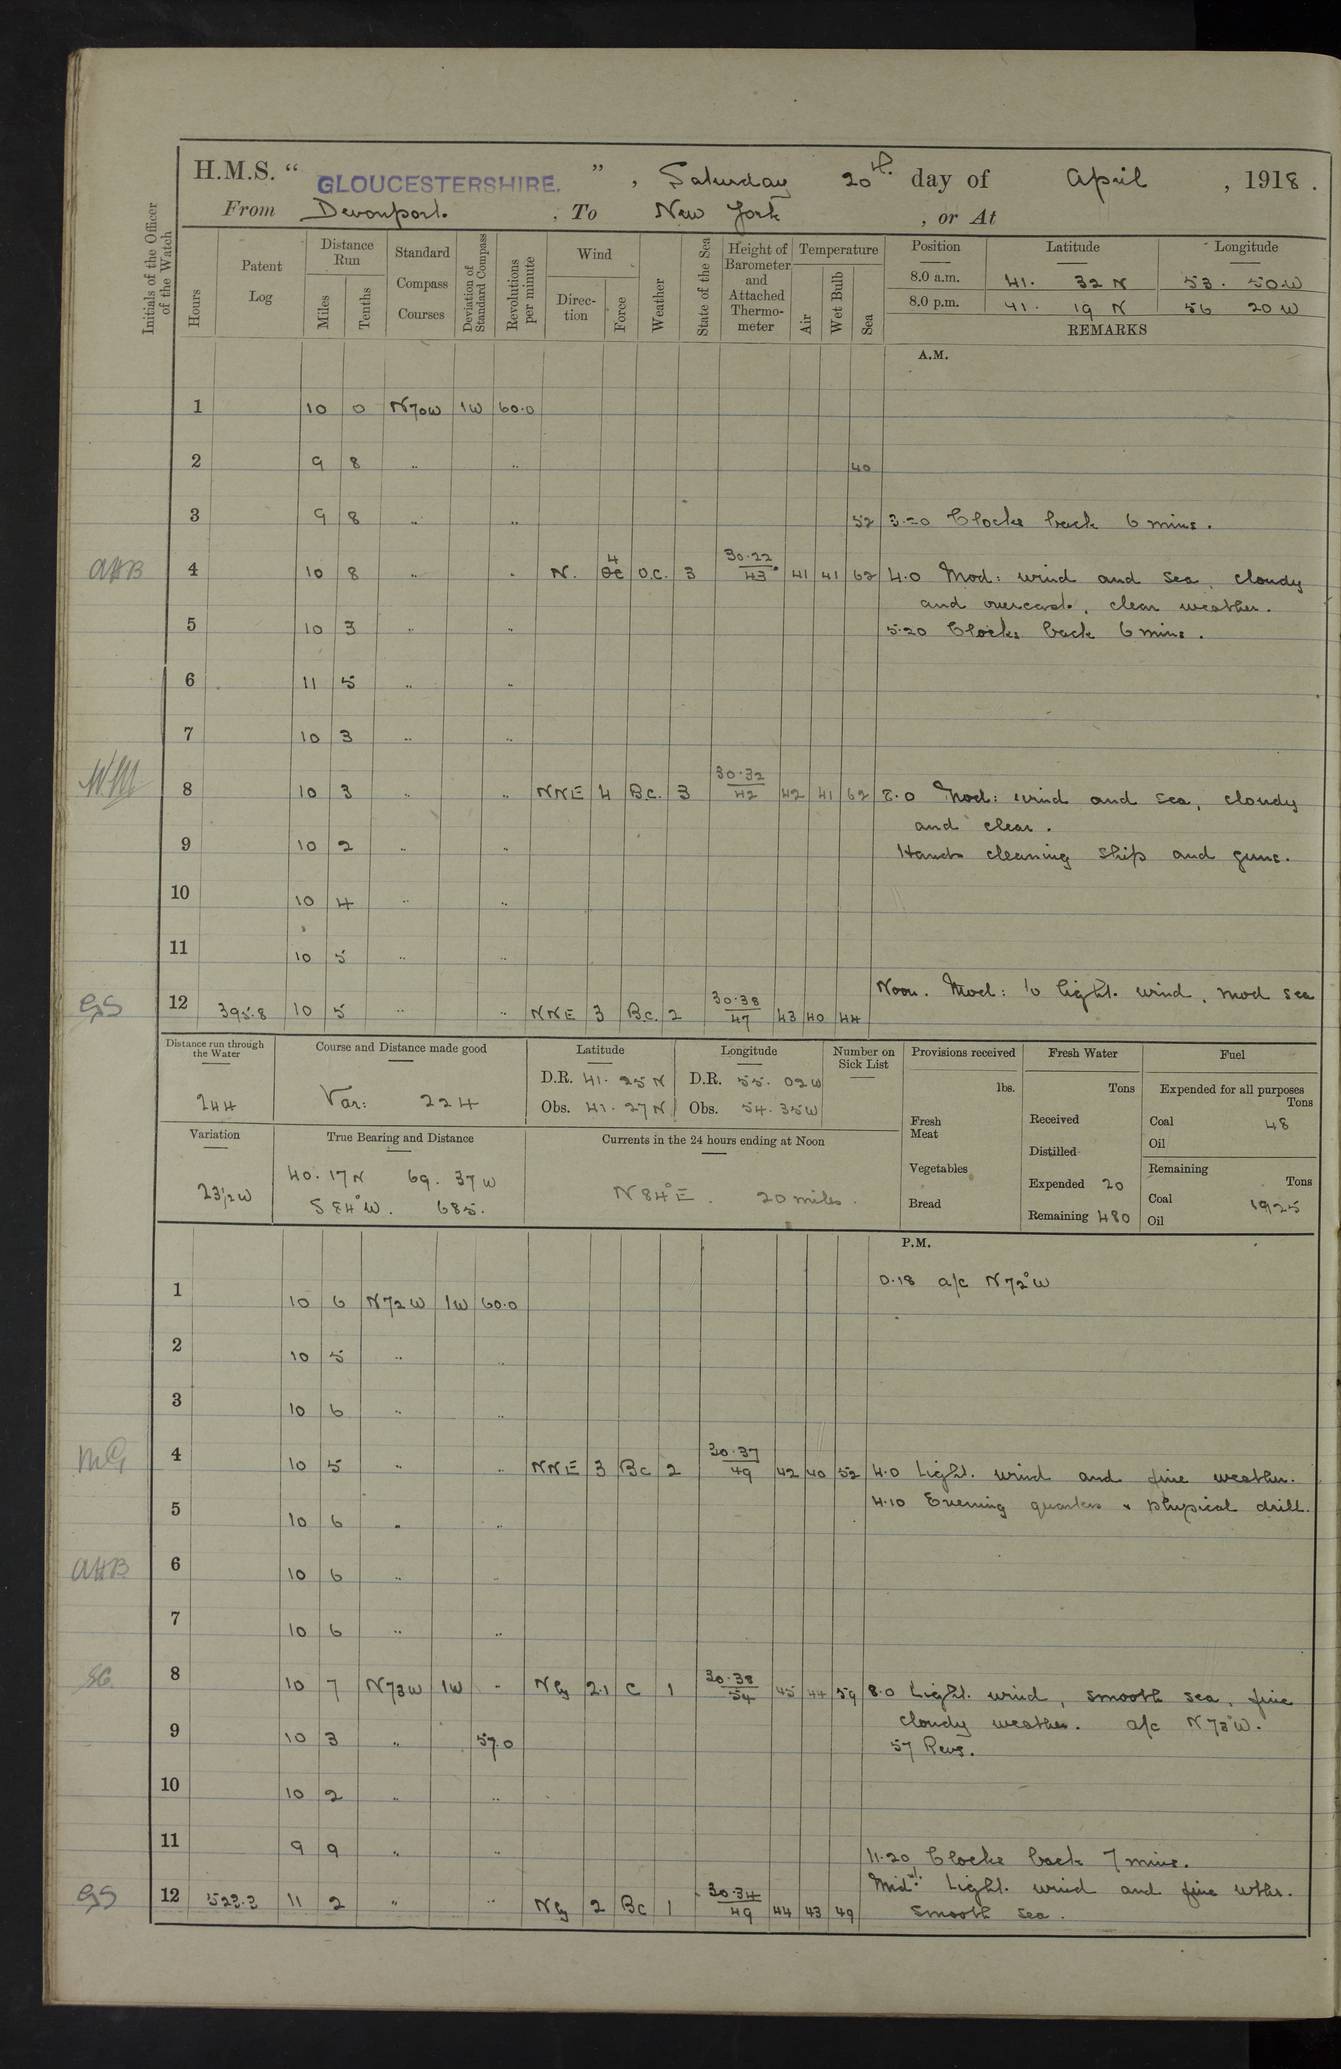 H.M.S. “ GLOUCESTERSHIRE. ” , Saturday 20th. day of April , 1918 .
From Devonport. , To New York , or At
Initials of the Officer of the Watch
Hours
Patent Log
Distance Run
Miles
Tenths
Standard Compass Courses
Deviation of Standard Compass
Revolutions per minute
Wind
Direction
Force
Weather
State of the Sea
Height of Barometer and Attached Thermometer
Temperature
Air
Wet Bulb
Sea
Position Latitude Longitude
8.0 a.m. 41. 32 N 53. 50 W
8.0 p.m. 41. 19 N 56 20 W
REMARKS
A.M.
1 10 0 N70W 1W 60.0
2 9 8 .. .. 40
3 9 8 .. .. 52 3.20 Clocks back 6 mins.
AHB 4 10 8 .. .. N. 4 O.C. 3 30.22 43 41 41 62 4.0 Mod: wind and sea, cloudy
and overcast, clear weather.
5 10 3 .. .. 5.20 Clocks back 6 mins.
6 11 5 .. ..
7 10 3 .. ..
8 10 3 .. .. NNE 4 B.C. 3 30.32 42 42 41 62 8.0 Mod: wind and sea, cloudy
and clear.
9 10 2 .. .. Hands cleaning ship and guns.
10 10 4 .. ..
11 10 5 .. ..
GS 12 395.8 10 5 .. .. NNE 3 B.C. 2 30.38 47 43 40 44 Noon. Mod: to light. wind, mod sea
Distance run through the Water
244
Course and Distance made good
Var: 224
Latitude
D.R. 41. 25 N
Obs. 41. 27 N
Longitude
D.R. 55. 02 W
Obs. 54. 35 W
Number on Sick List
Provisions received
lbs.
Fresh Meat
Vegetables
Bread
Fresh Water
Tons
Received
Distilled
Expended 20
Remaining 480
Fuel
Expended for all purposes
Tons
Coal 48
Oil
Remaining
Tons
Coal 1925
Oil
Variation
23½W
True Bearing and Distance
40. 17 N 69. 37 W
S 84° W. 685.
Currents in the 24 hours ending at Noon
N 84° E. 20 miles.
P.M.
1 10 6 N72W 1W 60.0 0.18 a/c N72°W
2 10 5 .. ..
3 10 6 .. ..
4 10 5 .. .. NNE 3 BC 2 30.37 49 42 40 52 4.0 Light. wind and fine weather.
5 10 6 .. .. 4.10 Evening quarters & physical drill.
AHB 6 10 6 .. ..
7 10 6 .. ..
8 10 7 N73W 1W .. Nly 2.1 C 1 30.38 54 45 44 59 8.0 Light. wind, smooth sea, fine
cloudy weather. a/c N73°W.
9 10 3 .. 57.0 57 Revs.
10 10 2 .. ..
11 9 9 .. .. 11.20 Clocks back 7 mins.
GS 12 523.3 11 2 .. .. Nly 2 BC 1 30.34 49 44 43 49 Midt. Light. wind and fine wthr.
smooth sea.